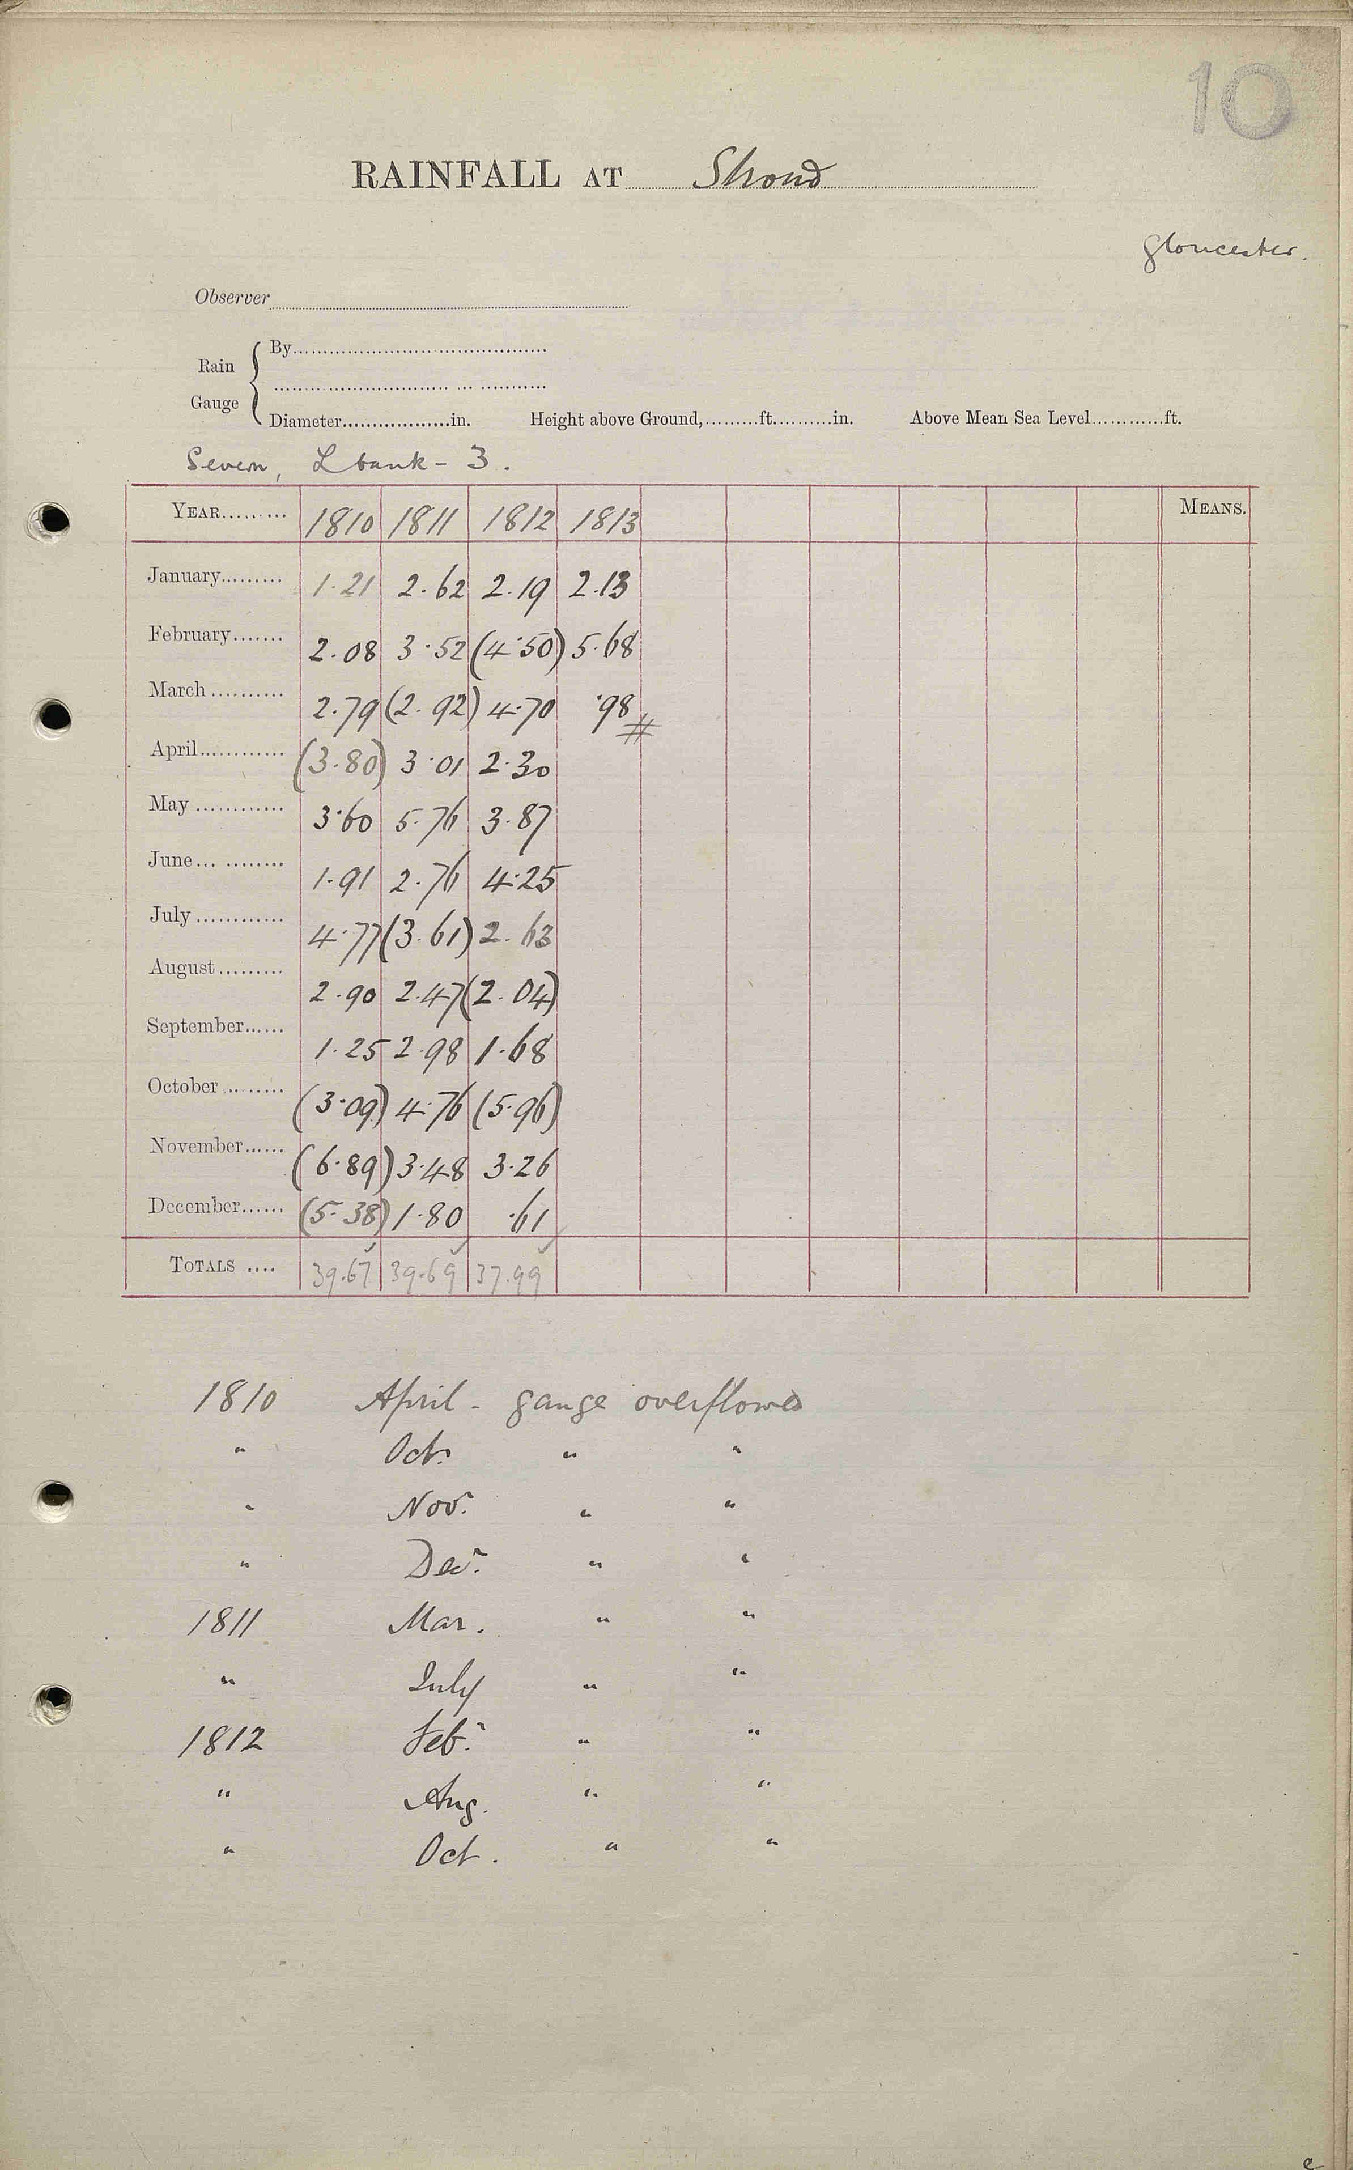 10
RAINFALL AT Stroud
Gloucester.
Observer
Rain Gauge
By
Diameter in. Height above Ground, ft. in. Above Mean Sea Level ft.
Severn, L bank - 3.
YEAR 1810 1811 1812 1813 MEANS.
January 1.21 2.62 2.19 2.13
February 2.08 3.52 (4.50) 5.68
March 2.79 (2.92) 4.70 .98 #
April (3.80) 3.01 2.30
May 3.60 5.76 3.87
June 1.91 2.76 4.25
July 4.77 (3.61) 2.63
August 2.90 2.47 (2.04)
September 1.25 2.98 1.68
October (3.09) 4.76 (5.96)
November (6.89) 3.48 3.26
December (5.38) 1.80 .61
TOTALS 39.67 39.69 37.99
1810 April - gauge overflowed
" Oct. " "
" Nov. " "
" Dec. " "
1811 Mar. " "
" July " "
1812 Feb. " "
" Aug. " "
" Oct. " "